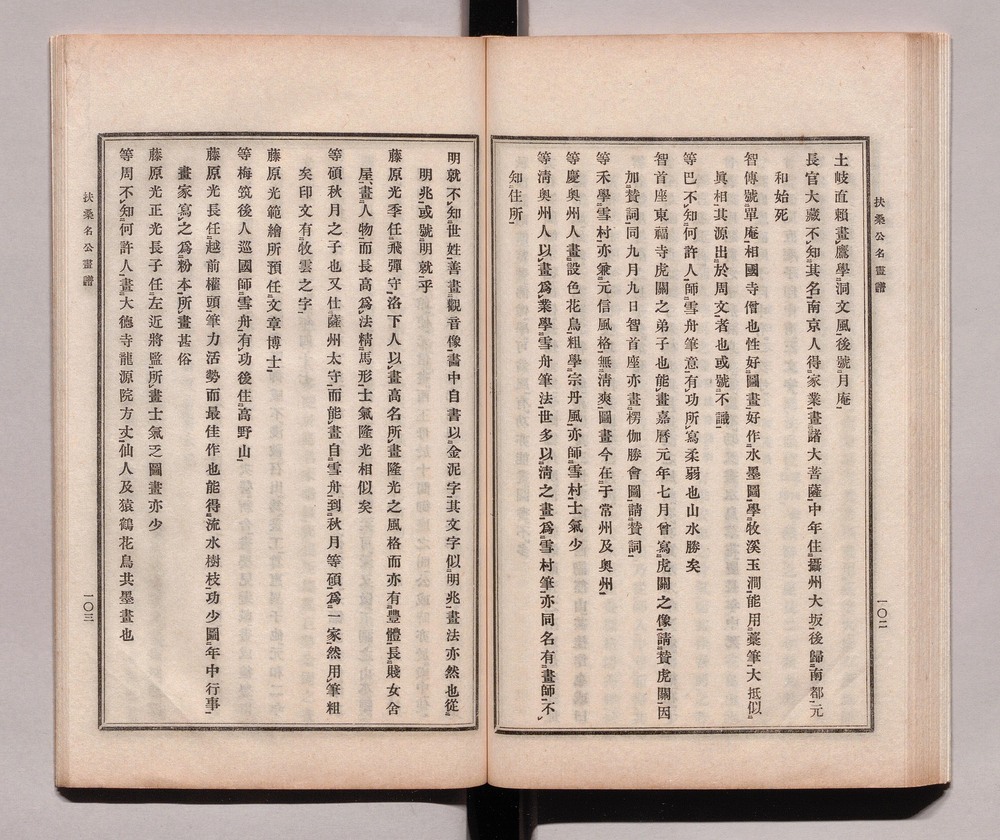 扶桑名公畫譜
一〇二
土岐直賴畫鷹學洞文風後號月庵
長官大藏不知其名南京人得家業畫諸大菩薩中年住攝州大坂後歸南都元
和始死
智傳號單庵相國寺僧也性好圖畫好作水墨圖學牧溪玉澗能用藁筆大抵似
眞相其源出於周文者也或號不識
等巴不知何許人師雪舟筆意有功所寫柔弱也山水勝矣
智首座東福寺虎關之弟子也能畫嘉曆元年七月曾寫虎關之像請賛虎關因
加賛詞同九月九日智首座亦畫楞伽勝會圖請賛詞
等禾學雪村亦兼元信風格無清爽圖畫今在于常州及奥州
等慶奥州人畫設色花鳥粗學宗丹風亦師雪村士氣少
等清奥州人以畫爲業學雪舟筆法世多以清之畫爲雪村筆亦同名有畫師不
知住所
明就不知世姓善畫觀音像畵中自書以金泥字其文字似明兆畫法亦然也從
明兆或號明就乎
藤原光季任飛彈守洛下人以畫高名所畫隆光之風格而亦有豐體長賤女舍
屋畫人物而長高爲法精馬形士氣隆光相似矣
等碩秋月之子也又仕薩州太守而能畫自雪舟到秋月等碩爲一家然用筆粗
矣印文有牧雲之字
藤原光範繪所預任文章博士
等梅筑後人巡國師雪舟有功後住高野山
藤原光長任越前權頭筆力活勢而最佳作也能得流水樹枝功少圖年中行事
畫家寫之爲粉本所畫甚俗
藤原光正光長子任左近將監所畫士氣乏圖畫亦少
等周不知何許人畫大德寺龍源院方丈仙人及猿鶴花鳥共墨畫也
扶桑名公畫譜
一〇三